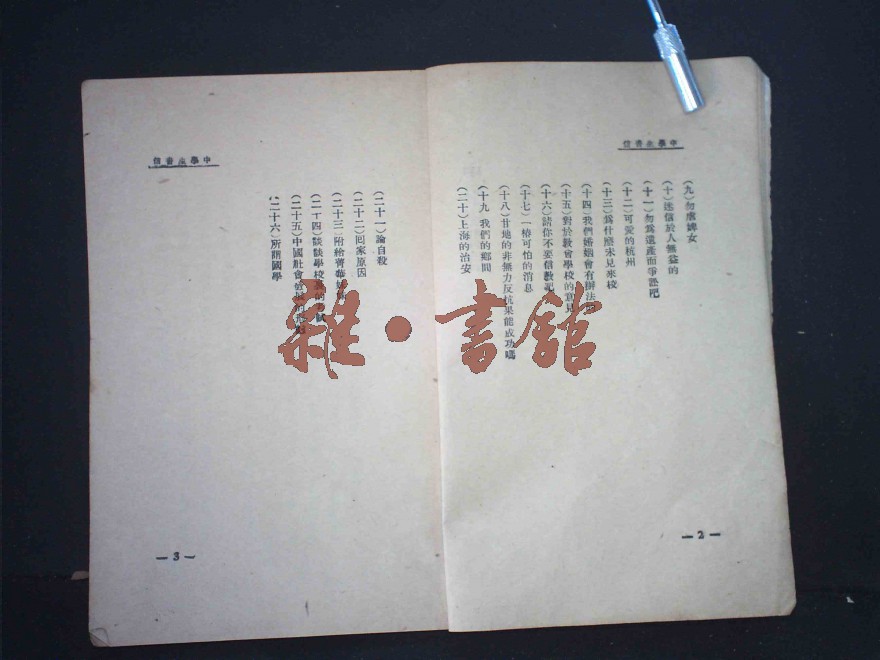 中學生書信
(九)勿虐婢女
(十)迷信於人無益的
(十一)勿爲遺產而爭訟吧
(十二)可愛的杭州
(十三)爲什麼未見來校
(十四)我們婚姻會有辦法
(十五)對於敎會學校的意見
(十六)請你不要信數
(十七)一樁可怕的消息
(十八)甘地的非無力反抗果能成功嗎
(十九)我們的鄉間
(二十)上海的治安
—2—
中學生書信
(二十一)論自殺
(二十二)回家原因
(二十三)附給
(二十四)談談學校
(二十五)中國社會
(二十六)所謂國學
—3—
雜·書館